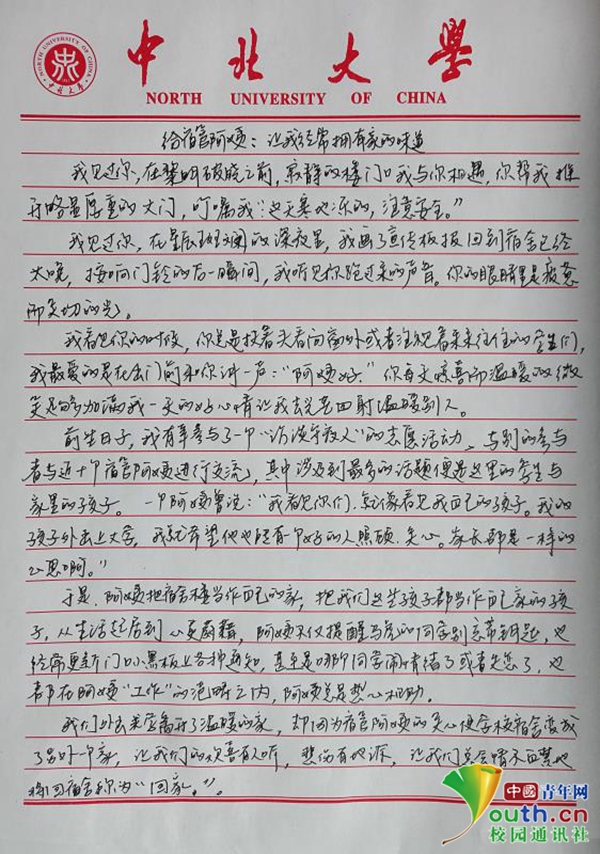 中北大学
NORTH UNIVERSITY OF CHINA
给宿管阿姨：让我经常拥有家的味道
我见过你，在黎明破晓之前，寂静的楼门口我与你相遇，你帮我推
开略显厚重的大门，叮嘱我：“边天寒地冻的，注意安全。”
我见过你，在星辰斑斓的深夜里，我画了宣传板报回到宿舍已经
太晚，按响门铃的后一瞬间，我听见你跑过来的声音。你的眼睛里是疲惫
而关切的光。
我看见你的时候，你总是抬着头看向窗外或者注视着来来往往的学生们，
我最爱的是在出门前和你讲一声：“阿姨好。”你每天嘴喜而温暖的微
笑足够加满我一天的好心情让我去光芒四射温暖别人。
前些日子，我有幸参与了一个“访谈守夜人”的志愿活动，与别的参与
者与近十个宿管阿姨进行交流，其中涉及到最多的话题便是这里的学生与
家里的孩子。一个阿姨曾说：“我看见你们，就像看见我自己的孩子。我的
孩子外出上大学，我就希望他也能有一个好的人照顾、关心。家长都是一样的
心思啊。”
于是，阿姨把宿舍楼当作自己的家，把我们这些孩子都当作自己家的孩
子，从生活起居到心灵慰藉，阿姨不仅提醒马虎的同学别忘带钥匙，也
经常更新门口小黑板上各种通知，甚至是哪个同学闹情绪了或者失恋了，也
都在阿姨“工作”的范畴之内，阿姨总是热心相助。
我们外出求学离开了温暖的家，却因为宿管阿姨的关心使学校宿舍变成
了另外一个家，让我们的欢喜有人听，悲伤有地源，让我们总会情不自禁地
将回宿舍称为“回家。”。
中国青年网
Youth.cn
校园通讯社